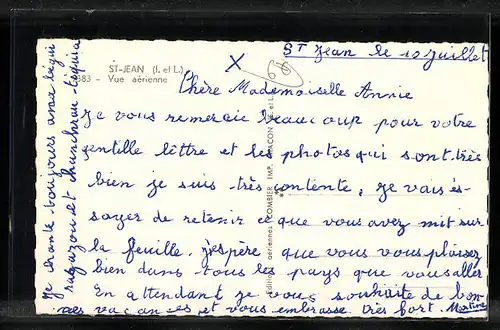 ST-JEAN (I. et L.)
383 - Vue aérienne
X
St Jean le 10 juillet
Chère Mademoiselle Annie
je vous remercie beaucoup pour votre
gentille lêttre et les photos qui sont très
bien je suis très contente, je vais és-
sayer de retenir ce que vous avez mit sur
la feuille. j'éspère que vous vous plaisez
bien dans tous les pays que vous aller
En attendant je vous souhaite de bon-
nes vacances et vous embrasse très fort. Martine
je chante toujours
ragazou et
Editions aériennes COMBIER IMP. MACON